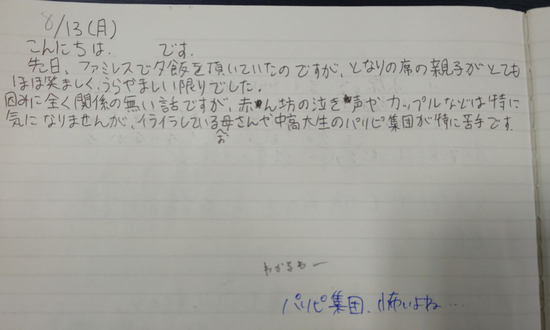 8/13(月)
こんにちは。 です。
先日、ファミレスで夕飯を頂いていたのですが、となりの席の親子がとても
ほほ笑ましく、うらやましい限りでした。
因みに全く関係の無い話ですが、赤ん坊の泣き声やカップルなどは特に
気になりませんが、イライラしているお母さんや中高大生のパリピ集団が特に苦手です。
わかるわー
パリピ集団、怖いよね…